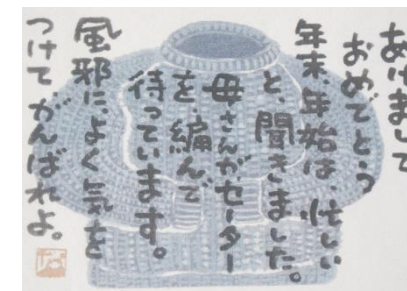 あけまして
おめでとう
年末、年始は、忙しい
と、聞きました。
母さんが、セーター
を、編んで
待っています。
風邪によく気を
つけて がんばれよ。